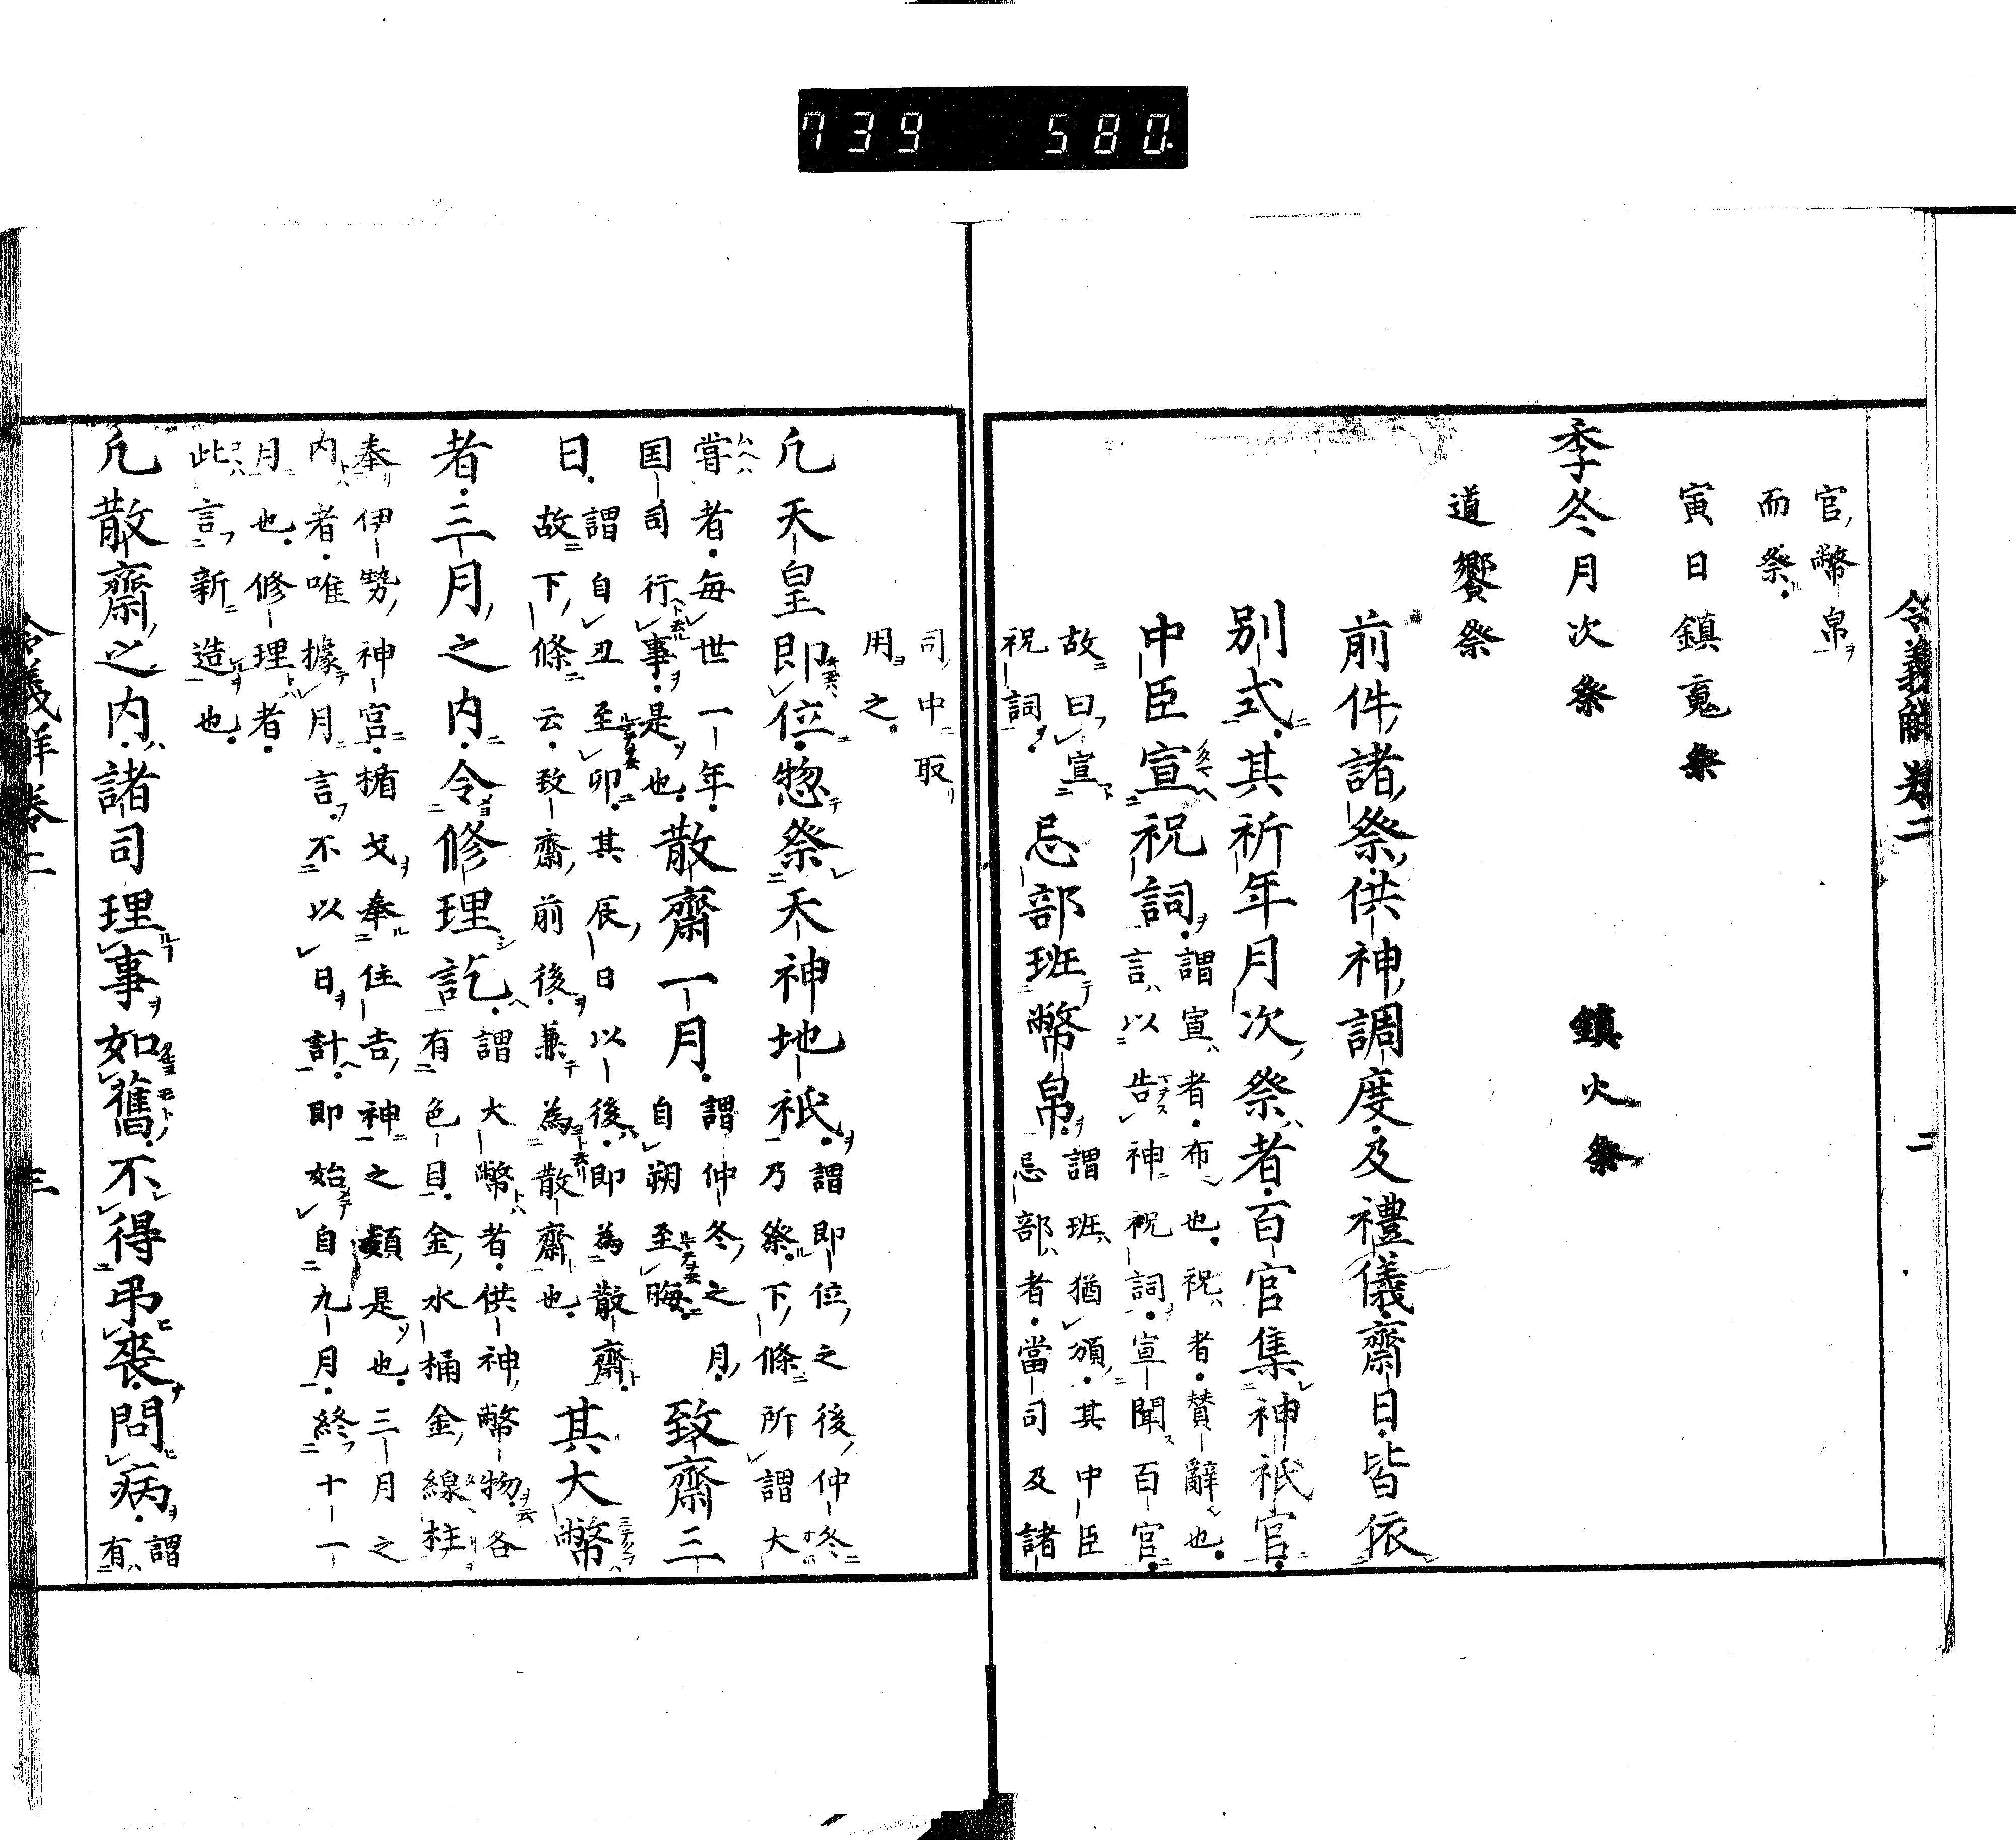 739 580.
令義解卷二 二
官幣帛
而祭
寅日鎮䰟祭
季冬月次祭 鎮火祭
道饗祭
前件諸祭供神調度及禮儀齋日皆依
別式其祈年月次祭者百官集神祇官
中臣宣祝詞謂宣者布也祝者賛辭也
言以告神祝詞宣聞百官
故曰宣
祝詞
忌部班幣帛謂班猶頒其中臣
忌部者當司及諸
司中取
用之
凢天皇即位惣祭天神地祇謂即位之後仲冬
乃祭下條所謂大
甞者每世一年
国司行事是也
散齋一月謂仲冬之月
自朔至晦
致齋三
日謂自丑至卯其辰日以後即為散齋
故下條云致齋前後兼為散齋也
其大幣
者三月之内令修理訖謂大幣者供神幣物各
有色目金水桶金線柱
奉伊勢神宮楯戈奉住吉神之類是也三月之
内者唯據月言不以日計即始自九月終十一
月也修理者
此言新造也
凢散齋之内諸司理事如舊不得弔喪問病謂
有
令義解卷二 三